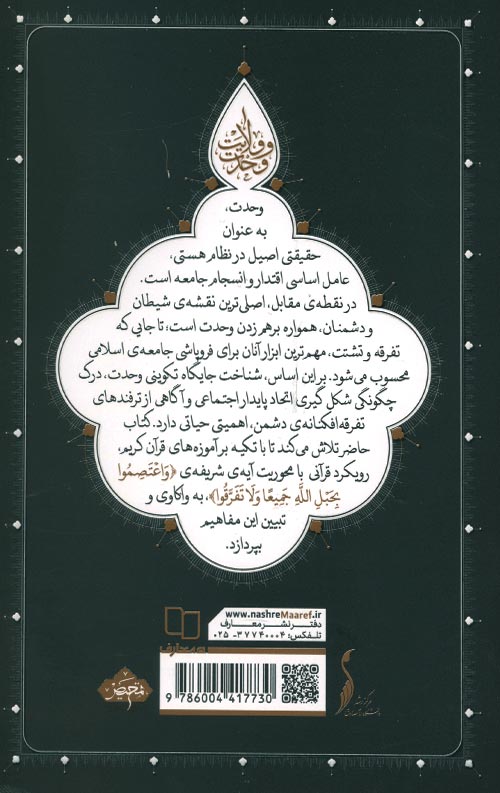 ولایت و وحدت
وحدت،
به عنوان
حقیقتی اصیل در نظام هستی،
عامل اساسی اقتدار و انسجام جامعه است.
در نقطه‌ی مقابل، اصلی‌ترین نقشه‌ی شیطان
و دشمنان، همواره برهم زدن وحدت است؛ تا جایی که
تفرقه و تشتت، مهم‌ترین ابزار آنان برای فروپاشی جامعه‌ی اسلامی
محسوب می‌شود. بر این اساس، شناخت جایگاه تکوینی وحدت، درک
چگونگی شکل گیری اتحاد پایدار اجتماعی و آگاهی از ترفندهای
تفرقه افکنانه‌ی دشمن، اهمیتی حیاتی دارد. کتاب
حاضر تلاش می‌کند تا با تکیه بر آموزه‌های قرآن کریم،
رویکرد قرآنی با محوریت آیه‌ی شریفه‌ی ﴿وَاعْتَصِمُوا
بِحَبْلِ اللَّهِ جَمِيعًا وَلَا تَفَرَّقُوا﴾، به واکاوی و
تبیین این مفاهیم
بپردازد.
www.nashreMaaref.ir
دفتر نشر معارف
تلفکس: ۳۷۷۴۰۰۰۴ - ۰۲۵
معارف
9 786004 417730